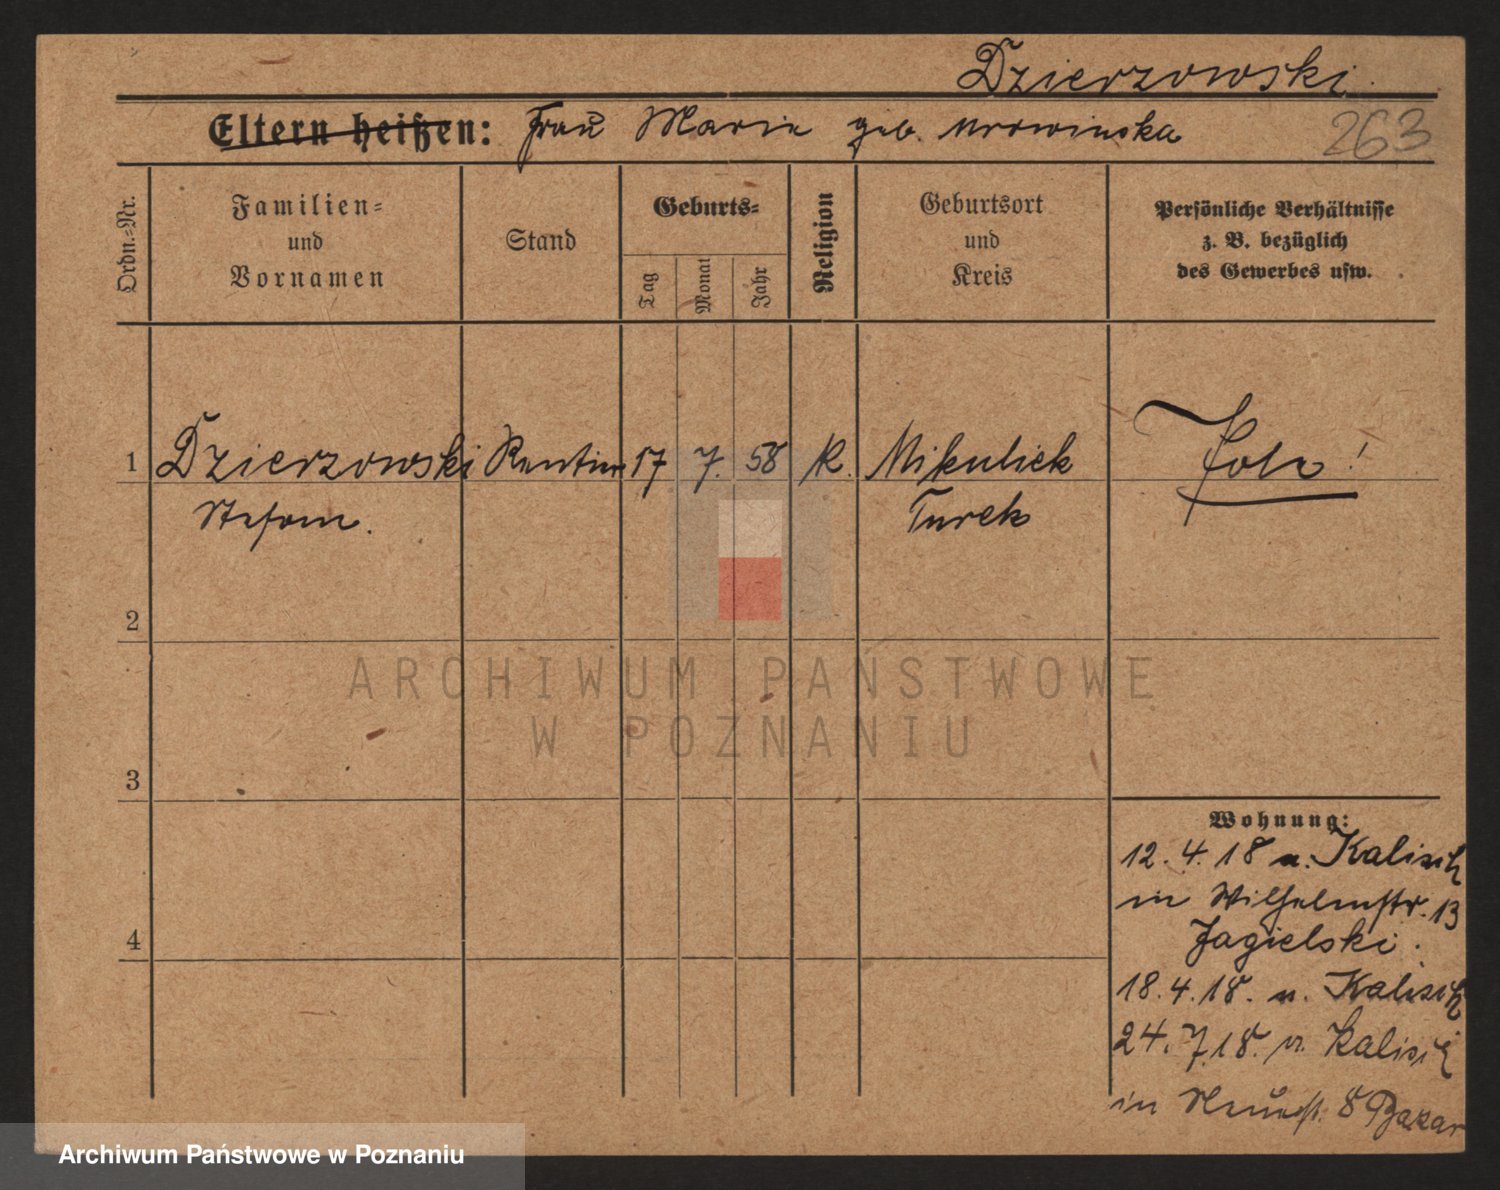 Dzierzowski.
Eltern heißen: Frau Marie geb. Mrowinska
263
Ordn.=Nr.
Familien=
und
Vornamen
Stand
Geburts=
Tag
Monat
Jahr
Religion
Geburtsort
und
Kreis
Persönliche Verhältnisse
z. B. bezüglich
des Gewerbes usw.
1 Dzierzowski Rentier 17 7. 58 K. Mikuliek
Stefan. Turek
2
3
4
Wohnung:
12. 4. 18 v. Kalisch
in Wilhelmstr. 13
Jagielski.
18. 4. 18. n. Kalisch
24. 7. 18. v. Kalisch
in Neuest. 8 Bazar
ARCHIWUM PAŃSTWOWE
W POZNANIU
Archiwum Państwowe w Poznaniu